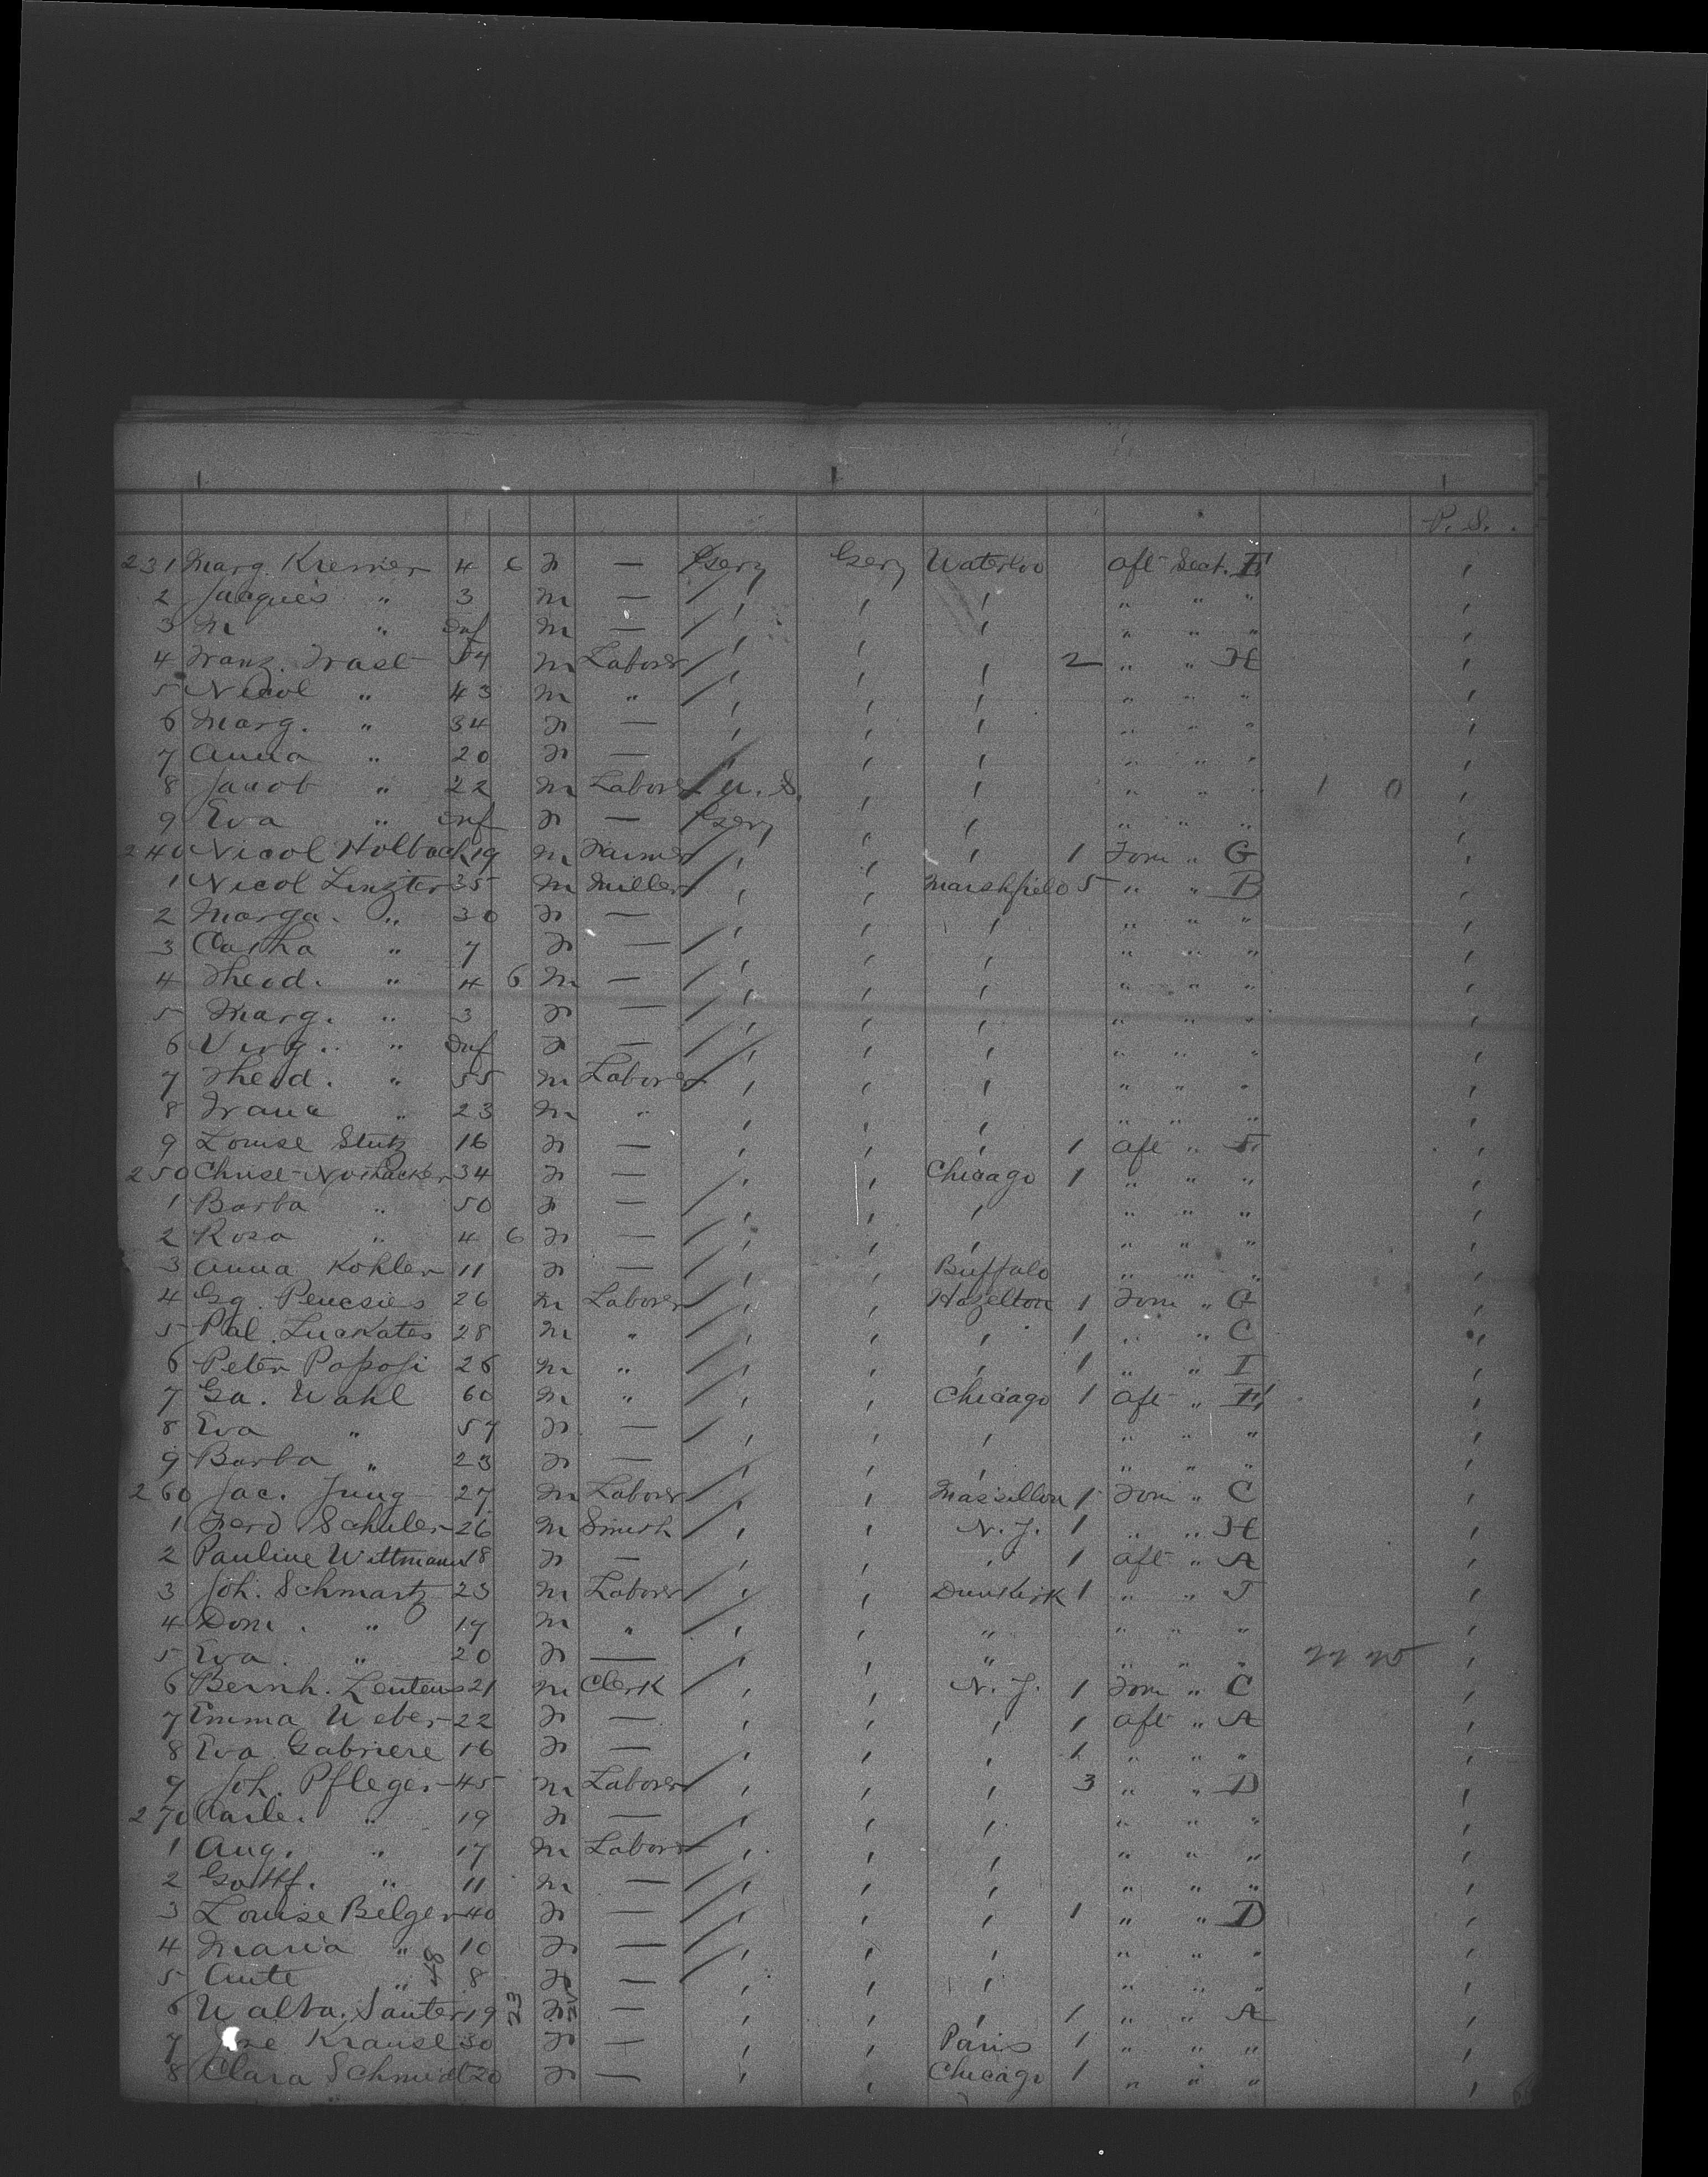 P. S.
231 Marg. Kremer 4 6 F — Gery Gery Waterloo Aft Sect. E
2 Jacques " 3 M — " " "
3 M " Inf M — " " "
4 Franz. Trast 54 M Laborer 2 " " H
5 Nicol " 43 M " " " "
6 Marg. " 34 F — " " "
7 Anna " 20 F — " " "
8 Jacob " 22 M Laborer U. S. " " " 1 0
9 Eva " Inf F — Gery " " "
240 Nicol Holbach 19 M Farmer 1 Form " G
1 Nicol Linzter 35 M Miller Marshfield 5 " " B
2 Marga. " 30 F — " " "
3 Catha " 7 F — " " "
4 Theod. " 4 6 M — " " "
5 Marg. " 3 F — " " "
6 Virg. " Inf F — " " "
7 Theod. " 55 M Laborer " " "
8 Franc " 23 M " " " "
9 Louise Stutz 16 F — 1 Aft "
250 34 F — Chicago 1 " " "
1 Barba " 50 F — " " "
2 Rosa " 4 6 F — " " "
3 Anna Kohler 11 F — Buffalo " " "
4 Gg. Pencsies 26 M Laborer Hazelton 1 Form " G
5 Pal. Luckates 28 M " 1 " " C
6 Peter Popofi 26 M " 1 " " I
7 Ga. Wahl 60 M " Chicago 1 Aft " E
8 Eva " 57 F — " " "
9 Barba " 23 F — " " "
260 Jac. Jung 27 M Laborer Massillon 1 Form " C
1 Ferd Schuler 26 M Smith N. J. 1 " " H
2 Pauline Wittmann 18 F — 1 Aft " A
3 Joh. Schmartz 23 M Laborer Dunkirk 1 " " J
4 Dom. " 19 M " " " " "
5 Eva. " 20 F — " " " "
6 Bernh. Lentens 21 M Clerk N. J. 1 Form " C
7 Emma Weber 22 F — 1 Aft " A
8 Eva Gabriere 16 F — 1 " " "
9 Joh. Pfleger 45 M Laborer 3 " " D
270 Carle. " 19 F — " " "
1 Aug. " 17 M Laborer " " "
2 Gottf. " 11 M — " " "
3 Louise Belger 40 F — 1 " " D
4 Maria " 10 F — " " "
5 " 8 F — " " "
6 Walba. Sauter 19 23 F — 1 " " A
7 Krause 30 F — Paris 1 " " "
8 Clara Schmidt 20 F — Chicago 1 " " "